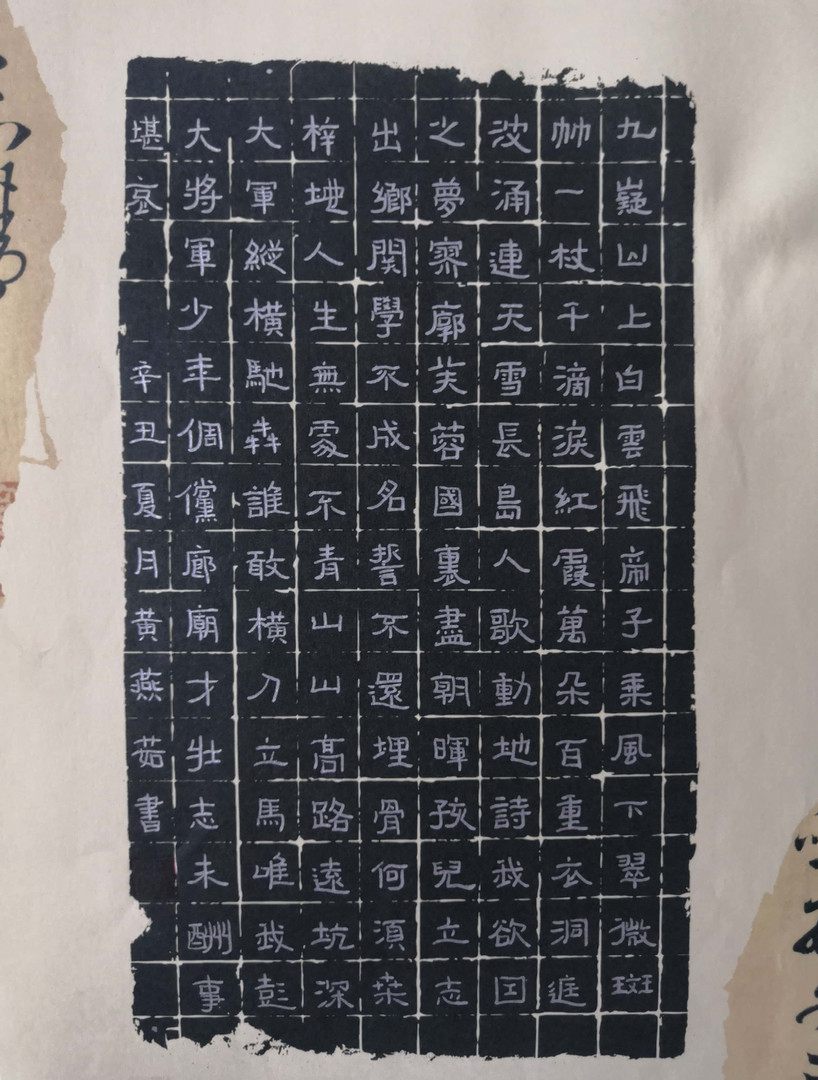 九嶷山上白雲飛帝子乘風下翠微斑
竹一枝千滴淚紅霞萬朵百重衣洞庭
波涌連天雪長島人歌動地詩我欲囙
之夢寥廓芙蓉國裏盡朝暉孩兒立志
出鄉關學不成名誓不還埋骨何須桒
梓地人生無處不青山山高路遠坑深
大軍縱橫馳犇誰敢橫刀立馬唯我彭
大將軍少年倜儻廊廟才壯志未酬事
堪哀 辛丑夏月黃燕茹書